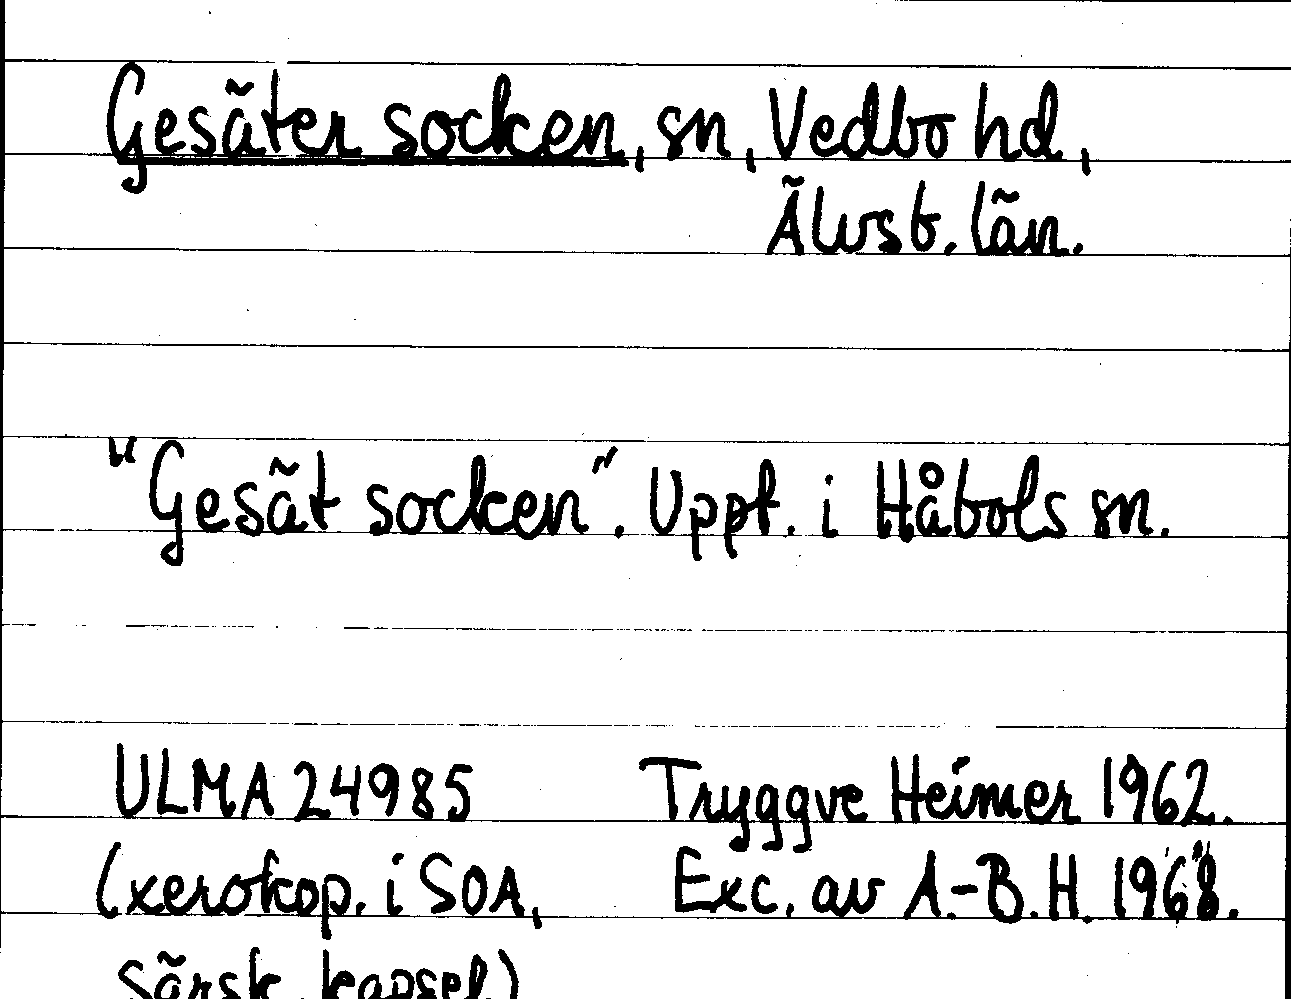 Gesäter socken, sn, Vedbo hd,
Älvsb. län.
"Gesät socken". Uppt. i Håbols sn.
ULMA 24985 Tryggve Heimer 1962.
(xerokop. i SOA, Exc. av A.-B. H. 1968.
särsk. kapsel)